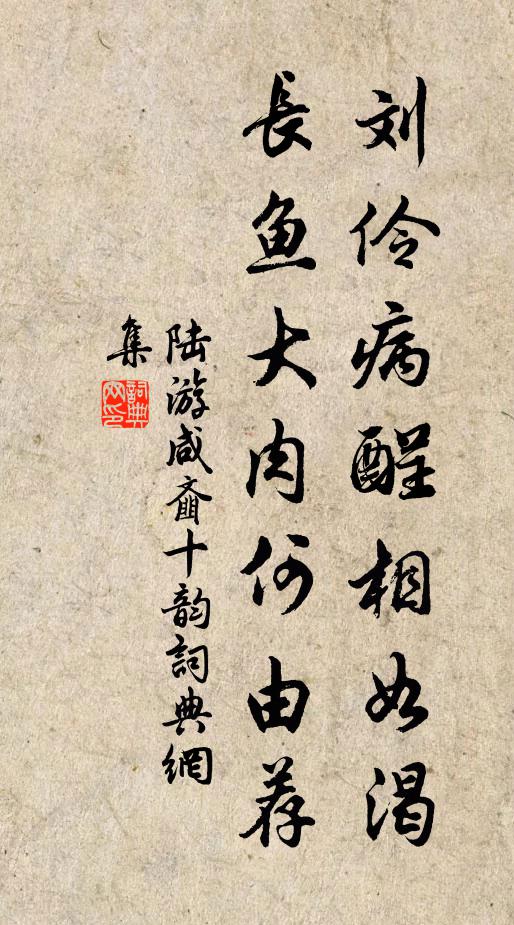 刘伶病酲相如渴
長鱼大肉何由荐
陆游咸齑十韵詞典網
集
詞典
网印